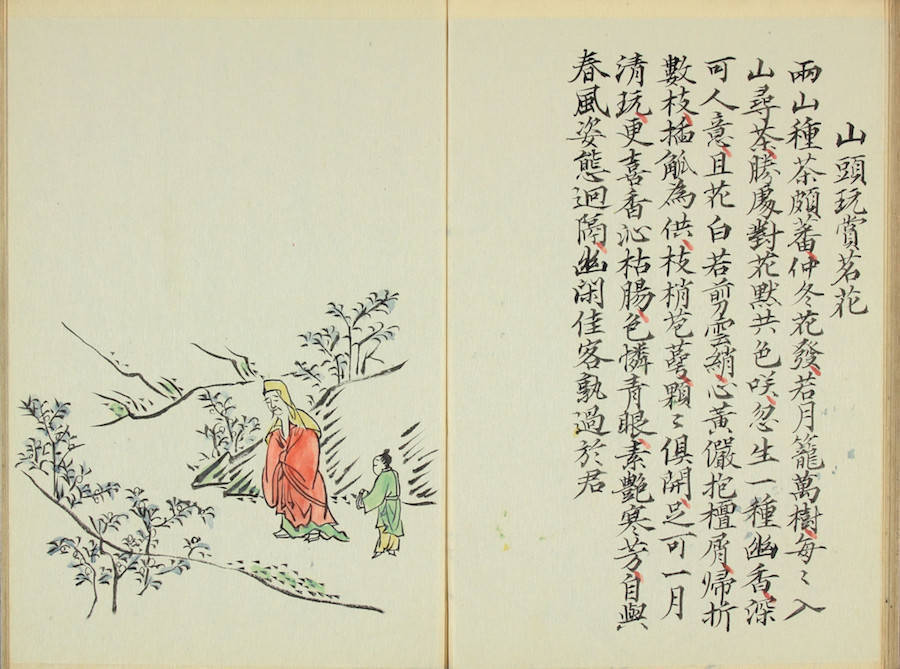 山頭玩賞茗花
兩山種茶頗蕃仲冬花發若月籠萬樹每〻入
山尋茶勝處對花默共色笑忽生一種幽香深
可人意且花白若剪雲綃心黃儼抱檀屑歸折
數枝插觚為供枝梢苞萼顆〻俱開足可一月
清玩更喜香沁枯腸色憐青眼素艷寒芳自與
春風姿態迥隔幽閑佳客孰過於君